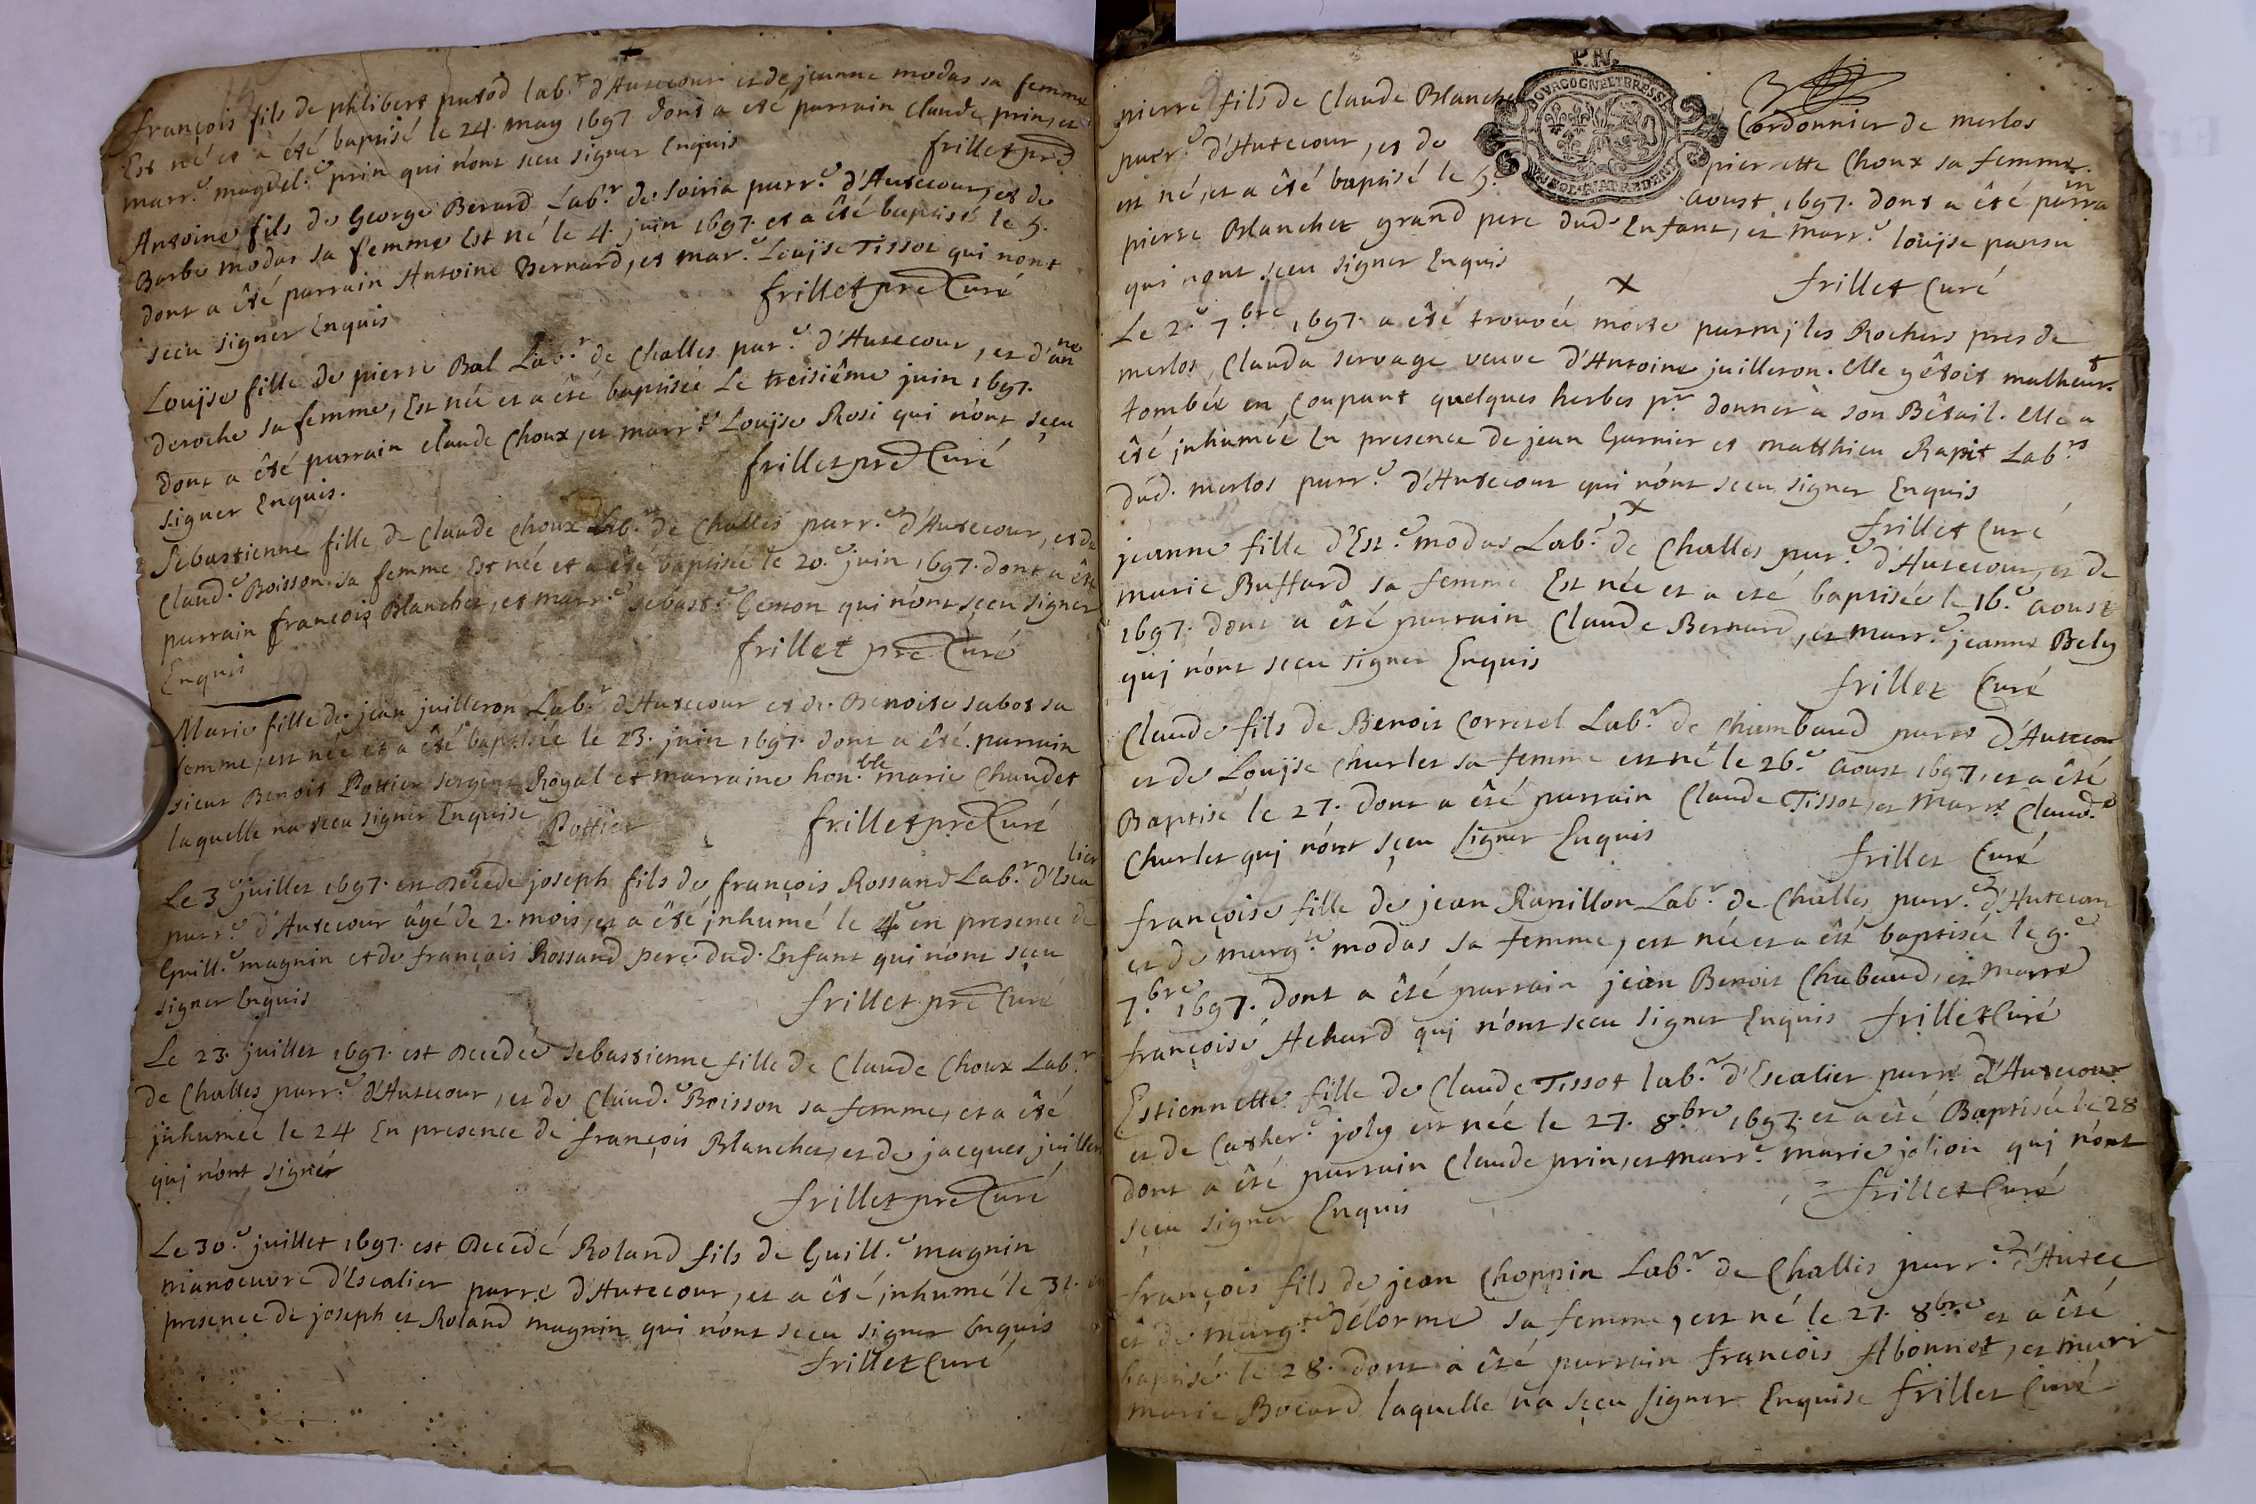 françois fils de philibert putod lab.r d'Autecour et de jeanne modas sa femme
Est né et a été baptisé le 24. may 1697 dont a eté parrain Claude prin, et
marr.e magdel.e prin qui n'ont sceu signer Enquis
frillet pre
Antoine fils de George Berard Lab.r de Soiria parr.e d'Autecour, et de
Barbe modas sa femme Est né le 4. juin 1697. et a êté baptisé le 5.
dont a êté parrain Antoine Bernard, et mar.e Louise Tissot qui n'ont
sceu signer Enquis
frillet pre Curé
Louise fille de pierre Bal Lab.r de Challes par.e d'Autecour, et d'anne
deroche sa femme, Est née et a êté baptisée Le treisiême juin 1697.
dont a êté parrain claude Choux, et marr.e Louise Rosi qui n'ont sceu
signer Enquis.
frillet pre Curé
Sebastienne fille de Claude Choux Lab.r de Challes parr.e d'Autecour, et de
Claud.e Boisson sa femme Est née et a été baptisée le 20.e juin 1697. dont a êté
parrain françois Blanchet, et marr.e sebast.e Genson qui n'ont sceu signer
Enquis
frillet pre Curé
Marie fille de jean juilleron Lab.r d'Autecour et de Benoite sabot sa
femme, est née et a êté baptisée le 23. juin 1697. dont a êté parrain
sieur Benoit Pottier sergent Royal et marraine hon.ble marie Chaudet
laquelle na sceu signer Enquise
Pottier
frillet pre Curé
Le 3.e juillet 1697. est Decedé joseph fils de françois Rossand Lab.r d'Escalier
parr.e d'Autecour âgé de 2. mois, et a êté inhumé le 4.e en presence de
Guill.e magnin et de françois Rossand pere dud. Enfant qui n'ont sceu
signer Enquis
frillet pre Curé
Le 23. juillet 1697. est Decedée sebastienne fille de Claude Choux Lab.r
de Challes parr.e d'Autecour, et de Claud.e Boisson sa femme, et a êté
inhumée le 24 En presence de françois Blanchet, et de jacques juilleron
qui n'ont signér
frillet pre Curé
Le 30.e juillet 1697. est Decedé Roland fils de Guill.e magnin
manoeuvre d'Escalier parr.e d'Autecour, et a êté inhumé le 31. en
presence de joseph et Roland magnin qui n'ont sceu signer Enquis
frillet Curé
P.N.
BOURGOGNE ET BRESSE
pierre fils de Claude Blanchet
Cordonnier de merlos
parr.e d'Autecour, et de
pierrette Choux sa femme.
est né, et a êté baptisé le 5.e
aoust 1697. dont a êté parrain
pierre Blanchet grand pere dud. Enfant, et marr.e louise pansu
qui n'ont sceu signer Enquis
frillet Curé
Le 2.e 7.bre 1697. a êté trouvée morte parmj les Rochers pres de
merlos, Clauda servage veuve d'Antoine juilleron. elle y êtoit malheur.t
tombée en coupant quelques herbes p.r donner à son Bêtail. elle a
êté inhumée En presence de jean Garnier et matthieu Rapit Lab.rs
dud. merlos parr.e d'Autecour qui n'ont sceu signer Enquis
frillet Curé
jeanne fille d'Est.e modas Lab.r de Challes par.e d'Autecour, et de
marie Buffard sa femme Est née et a eté baptisée le 16.e aoust
1697. dont a êté parrain Claude Bernard, et marr.e jeanne Bely
qui n'ont sceu signer Enquis
frillet Curé
Claude fils de Benoit Corretel Lab.r de Chambaud parr.e d'Autecour
et de Louise Charlet sa femme est né le 26.e aoust 1697, et a êté
Baptisé le 27. dont a êté parrain Claude Tissot, et marr.e Claud.e
Charlet qui n'ont sceu signer Enquis
frillet Curé
françoise fille de jean Ravillon Lab.r de Challes parr.e d'Autecour
et de marg.te modas sa femme, est née et a êté baptisée le 9.e
7.bre 1697. dont a êté parrain jean Benoit Chabaud, et marr.e
françoise Achard qui n'ont sceu signer Enquis frillet Curé
Estiennette fille de Claude Tissot lab.r d'Escalier parr.e d'Autecour
et de Cather.e joly est née le 27. 8.bre 1697. et a êté Baptisée le 28
dont a êté parrain Claude prin, et marr.e marie jolion qui n'ont
sceu signer Enquis
frillet Curé
françois fils de jean Choppin Lab.r de Challes parr.e d'Autec
et de marg.te delorme sa femme, est né le 27. 8.bre et a êté
baptisé le 28. dont a êté parrain françois Abonnet, et marr
marie Bocard laquelle n'a sceu signer Enquise frillet Curé